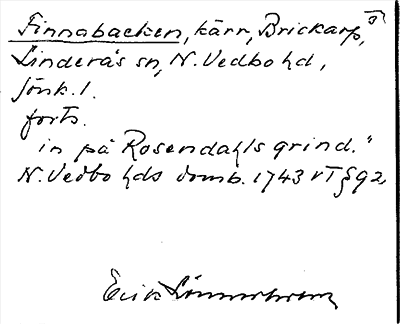 Finnabacken, kärr, Brickarp,
Linderås sn, N. Vedbo hd,
Jönk. l.
forts.
in på Rosendahls grind."
N. Vedbo hds domb. 1743 VT § 92,
Erik Lönnerholm